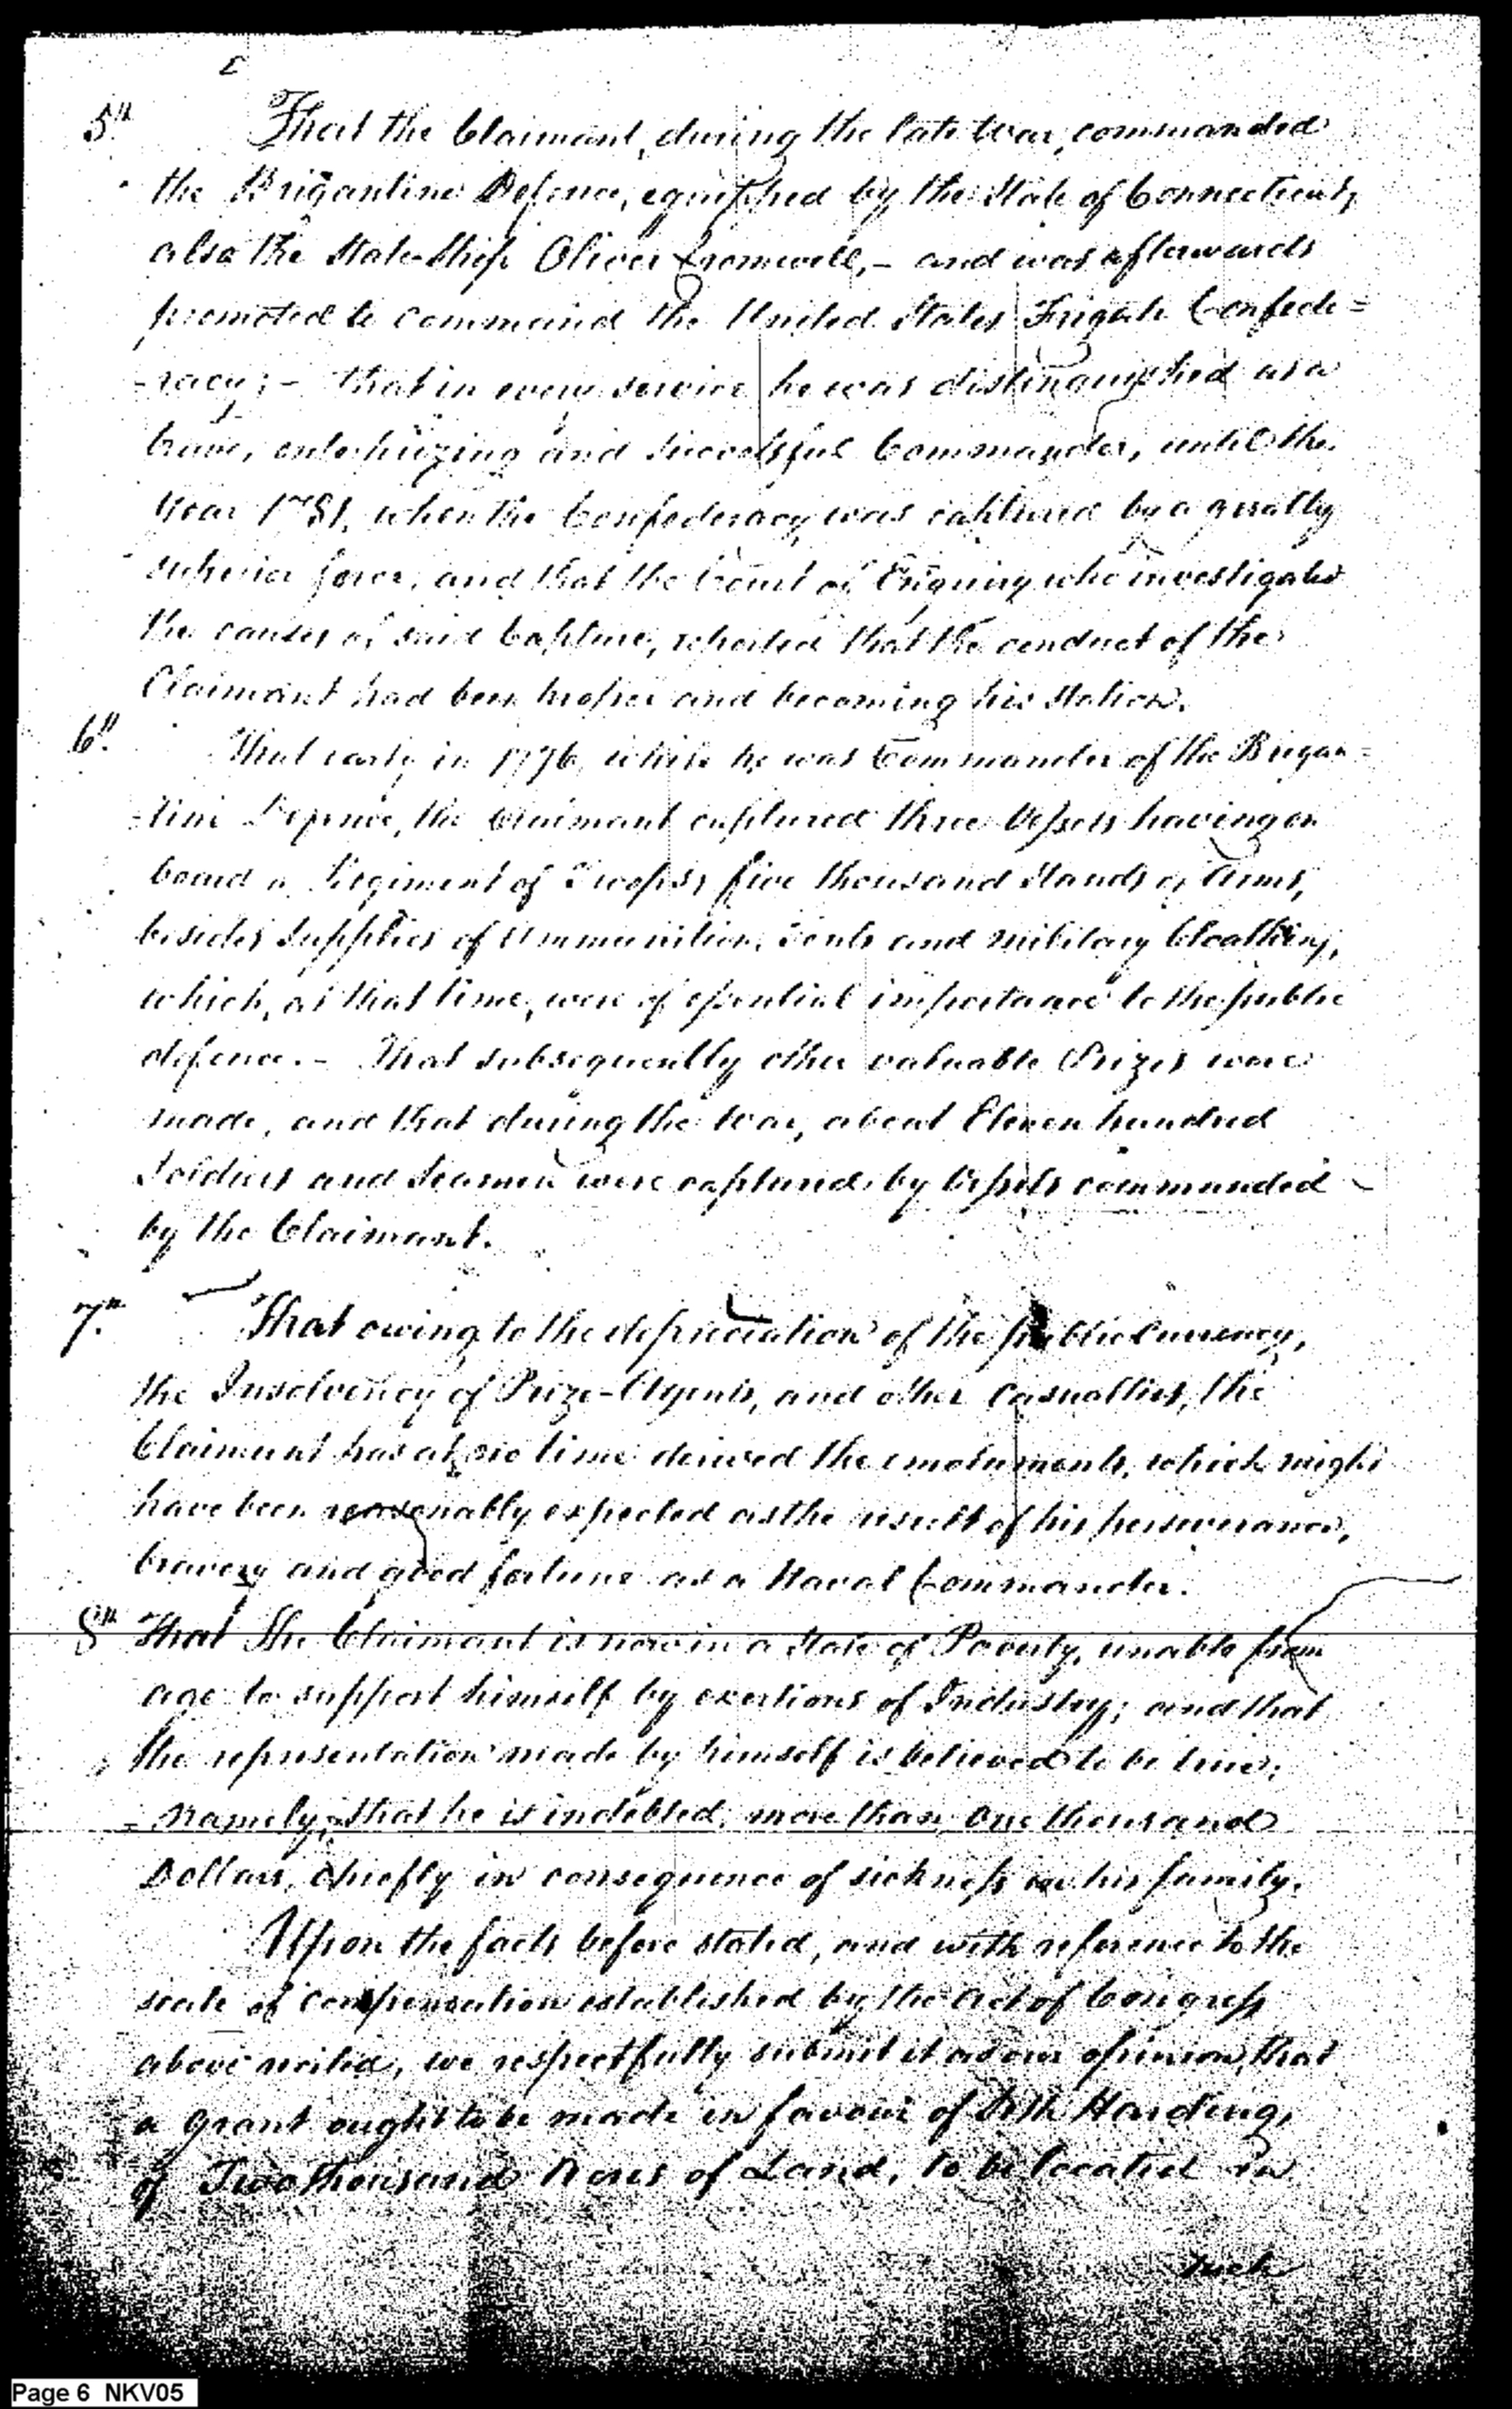 5th. That the Claimant, during the late War, commanded
the Brigantine Defence, equipped by the State of Connecticut,
also the State-Ship Oliver Cromwell, – and was afterwards
promoted to command the United States Frigate Confede=
-racy; – that in every service he was distinguished as a
brave, enterprizing and successful Commander, until the
Year 1781, when the Confederacy was captured by a greatly
superior force, and that the Court of Enquiry who investigated
the causes of said Capture, reported that the conduct of the
Claimant had been proper and becoming his station.
6th. That early in 1776, while he was Commander of the Brigan=
-tine Defence, the Claimant captured three Vessels having on
board a Regiment of Troops, five thousand Stands of Arms,
besides supplies of Ammunition, Tents and military Cloathing,
which, at that time, were of essential importance to the public
defence. – That subsequently other valuable Prizes were
made, and that during the War, about Eleven hundred
Soldiers and Seamen were captured by Vessels commanded
by the Claimant.
7th. That owing to the depreciation of the public Currency,
the Insolvency of Prize-Agents, and other Casualties, the
Claimant has at no time derived the emoluments, which might
have been reasonably expected as the result of his perseverance,
bravery and good fortune as a Naval Commander.
8th That the Claimant is now in a State of Poverty, unable from
age to support himself by exertions of Industry; and that
the representation made by himself is believed to be true;
namely, that he is indebted more than One thousand
Dollars, chiefly in consequence of sickness in his family.
Upon the facts before stated, and with reference to the
scale of compensation established by the Act of Congress
above recited, we respectfully submit it as our opinion, that
a grant ought to be made in favour of Seth Harding,
of Two thousand Acres of Land, to be located in
such
Page 6 NKV05